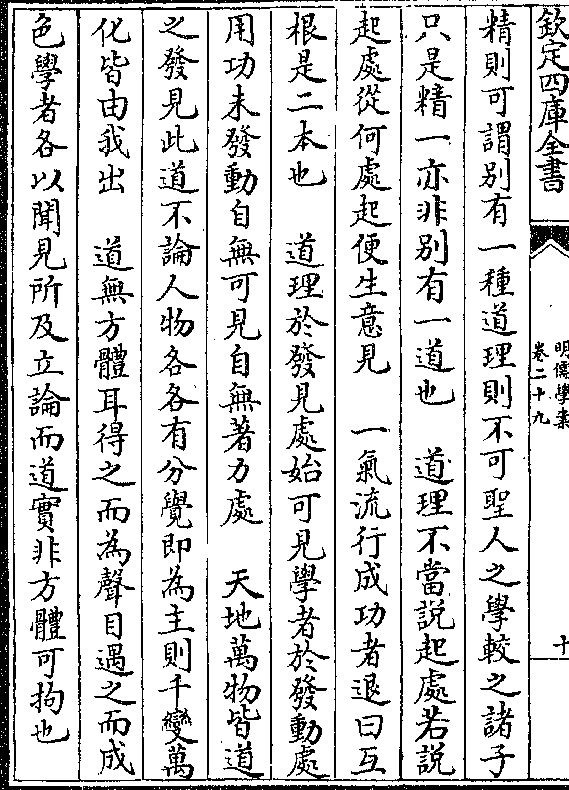 欽定四庫全書
明儒學案
卷二十九
十
精則可謂別有一種道理則不可聖人之學較之諸子
只是精一亦非別有一道也　道理不當説起處若説
起處從何處起便生意見　一氣流行成功者退曰互
根是二本也　道理於發見處始可見學者於發動處
用功未發動自無可見自無著力處　天地萬物皆道
之發見此道不論人物各各有分覺即為主則千變萬
化皆由我出　道無方體耳得之而為聲目遇之而成
色學者各以聞見所及立論而道實非方體可拘也